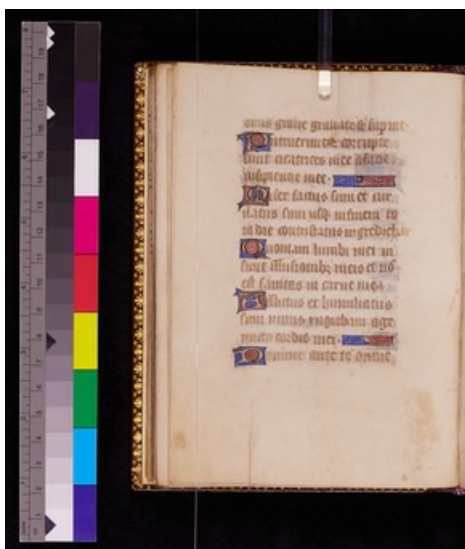 onus graue grauate st̄ sup me
Putruerunt ⁊ corrupte
sunt cicatrices mee a facie
insipientie mee.
Miser factus sum et cur
uatus sum usq in finem to
ta die contristatus ingrediebar
Quoniam lumbi mei in
illusionib; et nō
est sanitas in carne mea
Afflictus et humiliatus
sum nimis rugiebam a ge
mitu cordis mei.
Domine ante te omne